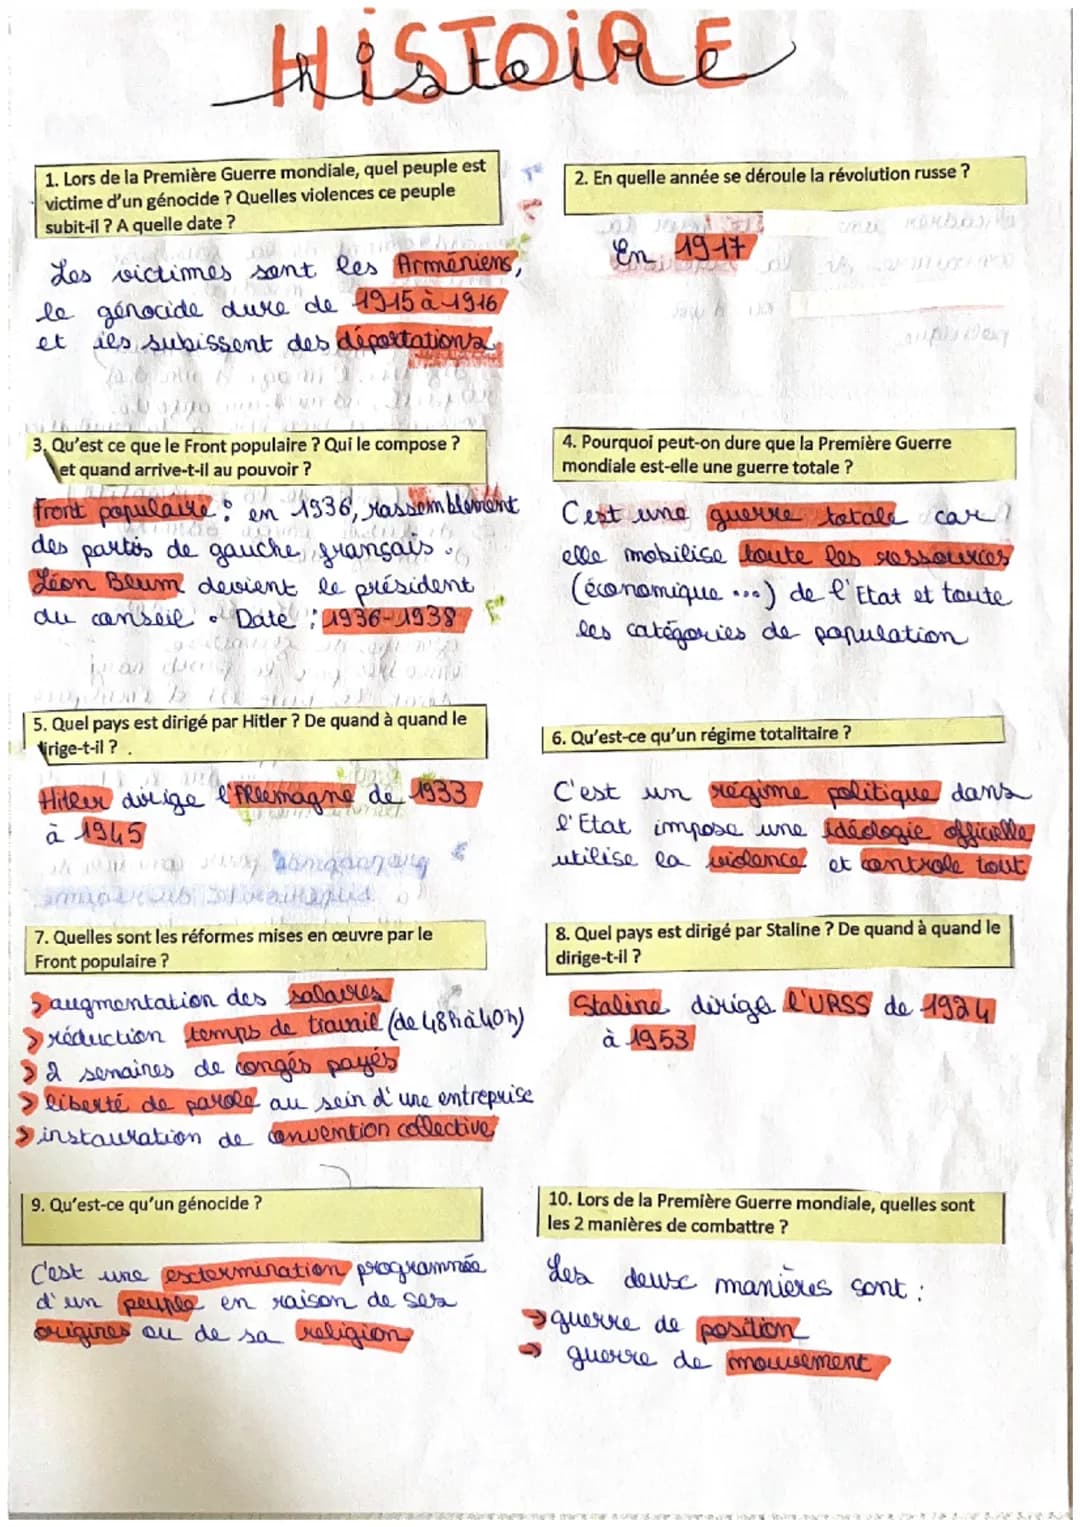 HiSTOiRE
histoire
1. Lors de la Première Guerre mondiale, quel peuple est
victime d'un génocide ? Quelles violences ce peuple
subit-il ? A quelle date ?
Les victimes sont les Arméniens,
le génocide dure de 1915 à 1916
et ils subissent des déportations
2. En quelle année se déroule la révolution russe ?
En 1917
3. Qu'est ce que le Front populaire ? Qui le compose ?
et quand arrive-t-il au pouvoir ?
Front populaire : en 1936, rassemblement
des partis de gauche français.
Léon Blum devient le président
du conseil. Date : 1936-1938
4. Pourquoi peut-on dure que la Première Guerre
mondiale est-elle une guerre totale ?
C'est une guerre totale car
elle mobilise toute les ressources
(économique ...) de l'Etat et toute
les catégories de population
5. Quel pays est dirigé par Hitler ? De quand à quand le
dirige-t-il ? .
Hitler dirige l'Allemagne de 1933
à 1945
6. Qu'est-ce qu'un régime totalitaire ?
C'est un régime politique dans
l'Etat impose une idéologie officielle
utilise la violence et controle tout
7. Quelles sont les réformes mises en œuvre par le
Front populaire ?
> augmentation des salaires
> réduction temps de travail (de 48h à 40h)
> 2 semaines de congés payés
> liberté de parole au sein d'une entreprise
> instauration de convention collective
8. Quel pays est dirigé par Staline ? De quand à quand le
dirige-t-il ?
Staline dirige l'URSS de 1924
à 1953
9. Qu'est-ce qu'un génocide ?
C'est une extermination programmée
d'un peuple en raison de ses
origines ou de sa religion
10. Lors de la Première Guerre mondiale, quelles sont
les 2 manières de combattre ?
Les deux manières sont :
→ guerre de position
→ guerre de mouvement